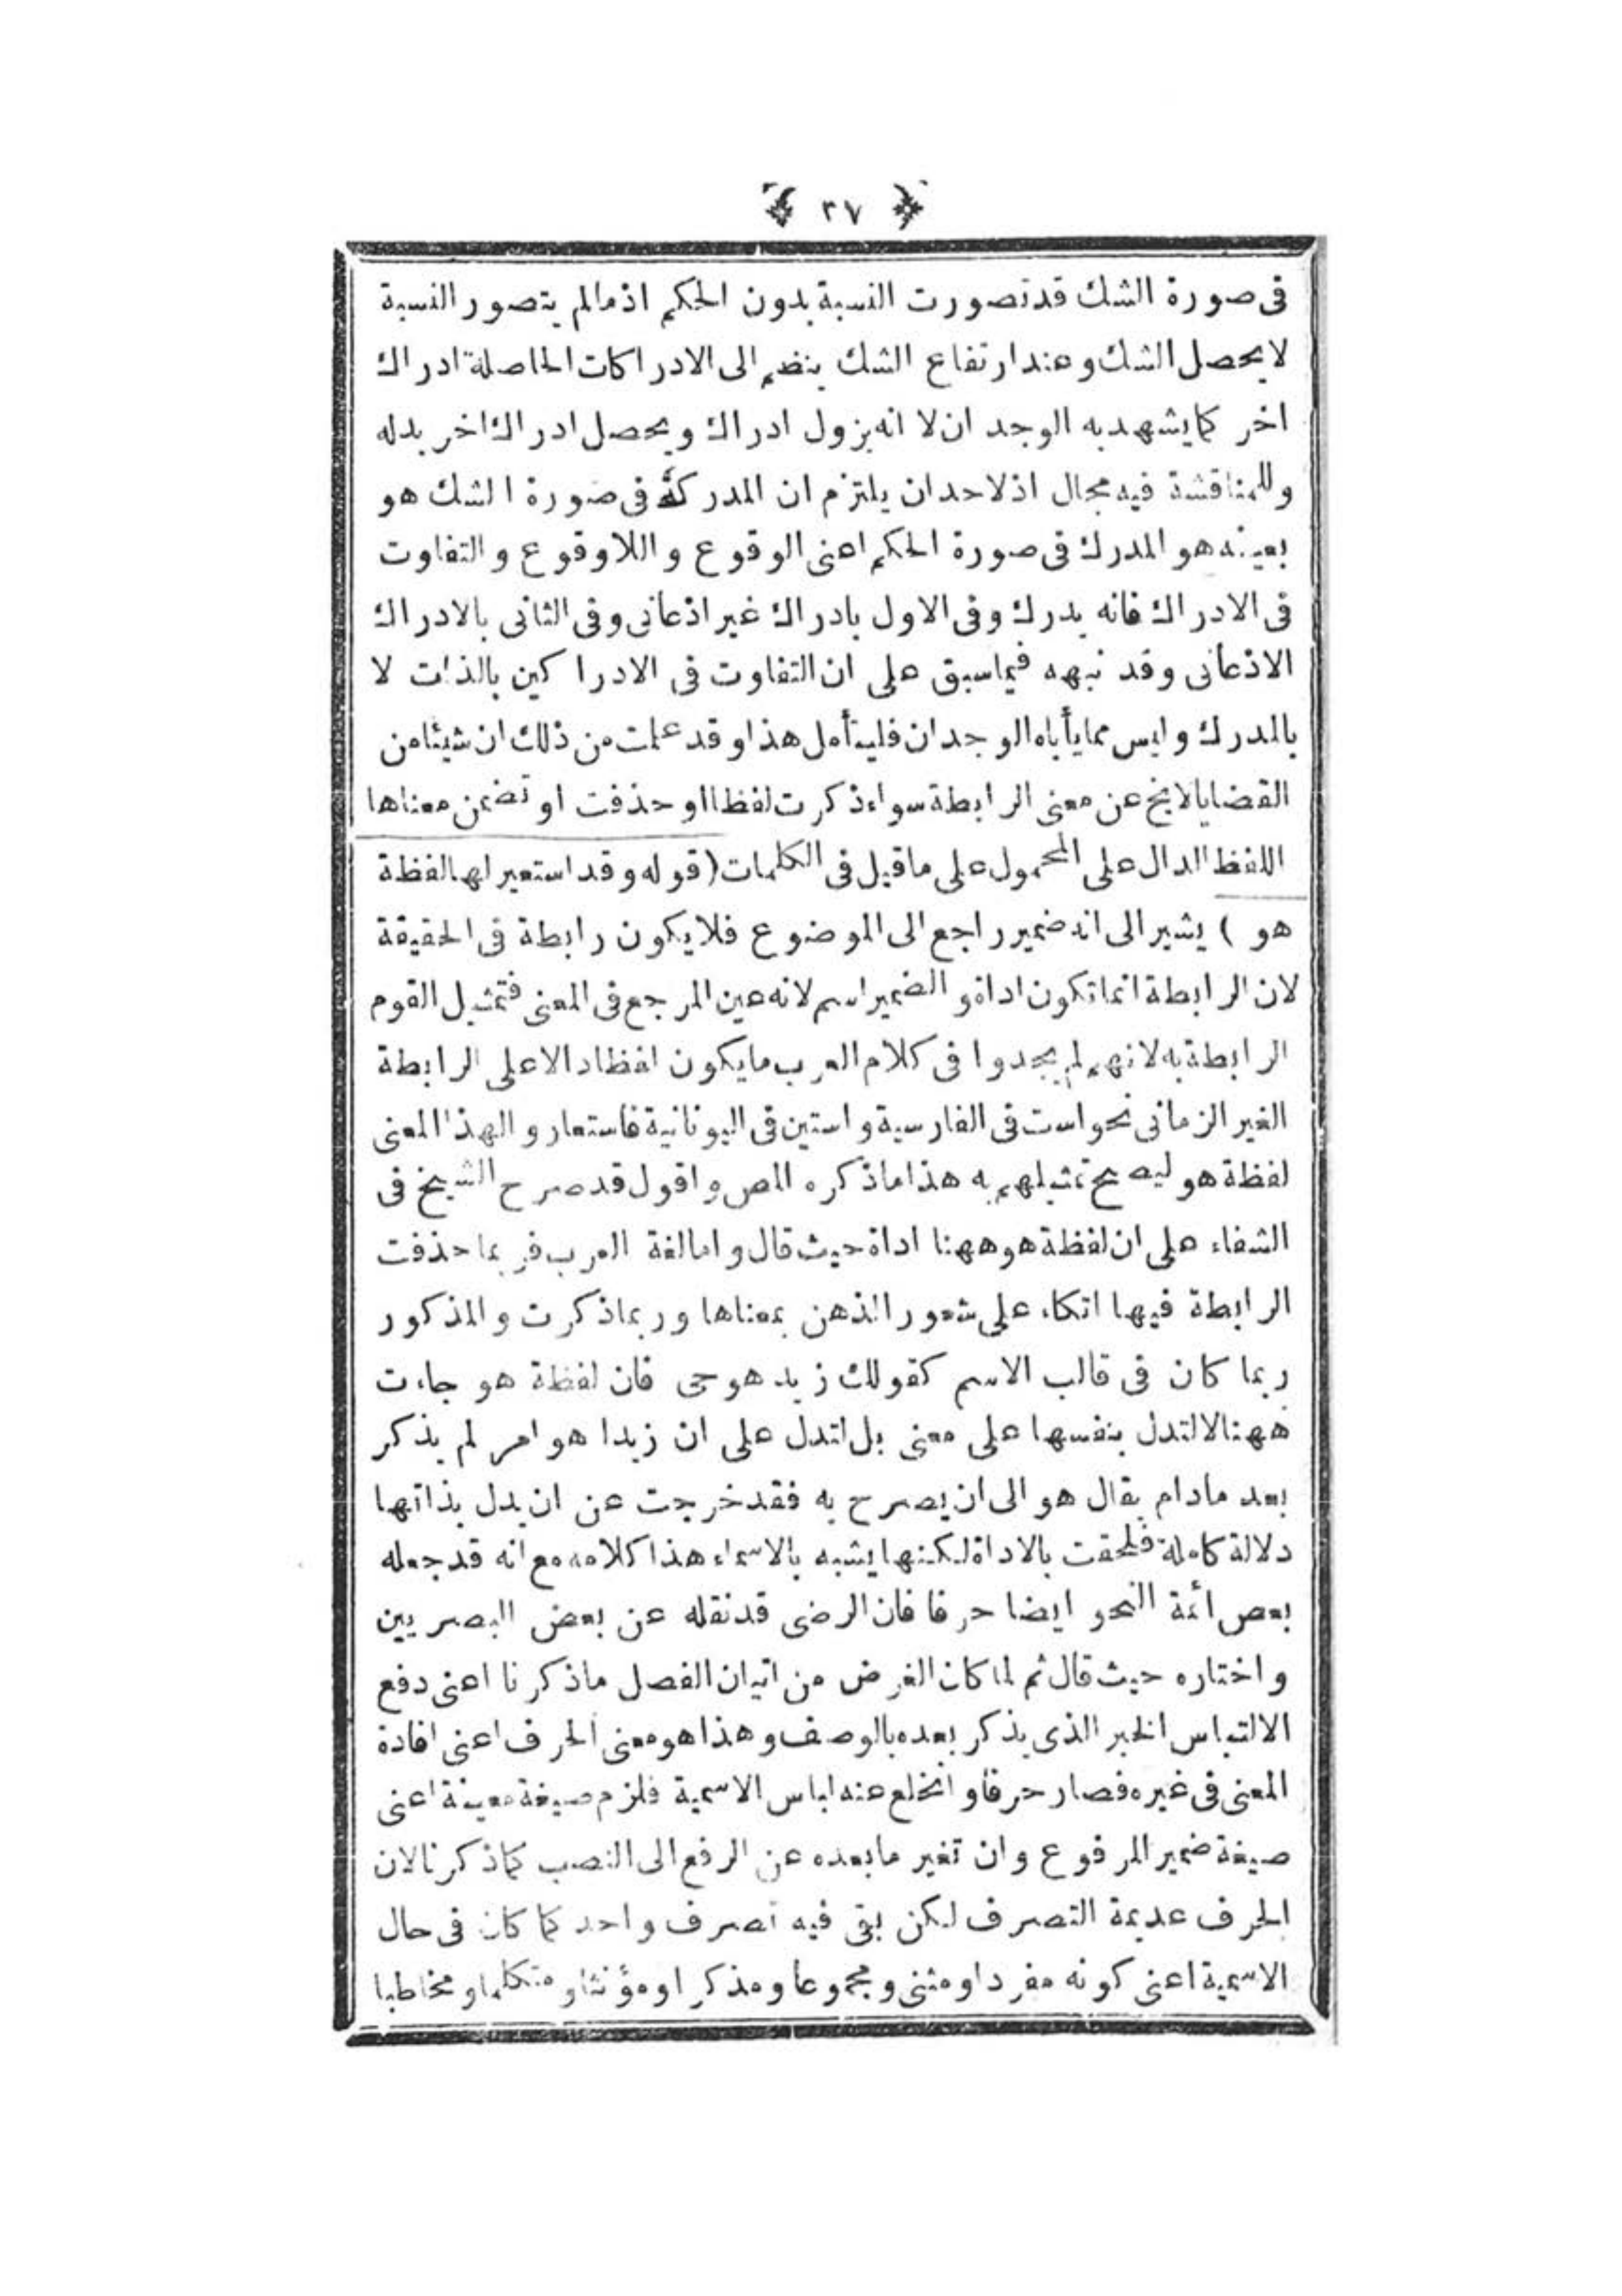 ٣٧
فى صورة الشك قد تصورت النسبة بدون الحكم اذ مالم يتصور النسبة
لا يحصل الشك وعند ارتفاع الشك ينضم الى الادراكات الحاصلة ادراك
اخر كما يشهد به الوجدان لا انه يزول ادراك ويحصل ادراك اخر بدله
وللمناقشة فيه مجال اذ لاحد ان يلتزم ان المدرك فى صورة الشك هو
بعينه هو المدرك فى صورة الحكم اعنى الوقوع واللاوقوع والتفاوت
فى الادراك فانه يدرك وفى الاول بادراك غير اذعانى وفى الثانى بالادراك
الاذعانى وقد نبهه فيما سبق على ان التفاوت فى الادراكين بالذات لا
بالمدرك وليس مما يأباه الوجدان فليتأمل هذا وقد علمت من ذلك ان شيئا من
القضايا لايخ عن معنى الرابطة سواء ذكرت لفظا او حذفت او تضمن معناها
اللفظ الدال على المحمول على ما قيل فى الكلمات (قوله وقد استعير لها لفظة
هو ) يشير الى انه ضمير راجع الى الموضوع فلا يكون رابطة فى الحقيقة
لان الرابطة انما تكون اداة والضمير اسم لانه عين المرجع فى المعنى فتمثيل القوم
الرابطة به لانهم لم يجدوا فى كلام العرب ما يكون لفظا دالا على الرابطة
الغير الزمانى نحو است فى الفارسية واستين فى اليونانية فاستعاروا لهذا المعنى
لفظة هو ليصح تمثيلهم به هذا ما ذكره المص واقول قد صرح الشيخ فى
الشفاء على ان لفظة هو ههنا اداة حيث قال واما لغة العرب فربما حذفت
الرابطة فيها اتكاء على شعور الذهن بمعناها وربما ذكرت والمذكور
ربما كان فى قالب الاسم كقولك زيد هو حى فان لفظة هو جاءت
ههنا لا لتدل بنفسها على معنى بل لتدل على ان زيدا هو امر لم يذكر
بعد مادام يقال هو الى ان يصرح به فقد خرجت عن ان يدل بذاتها
دلالة كاملة فلحقت بالاداة لكنها يشبه بالاسماء هذا كلامه مع انه قد جعله
بعص أئمة النحو ايضا حرفا فان الرضى قد نقله عن بعض البصريين
واختاره حيث قال ثم لما كان الغرض من اتيان الفصل ما ذكرنا اعنى دفع
الالتباس الخبر الذى يذكر بعده بالوصف وهذا هو معنى الحرف اعنى افادة
المعنى فى غيره فصار حرفا وانخلع عنه لباس الاسمية فلزم صيغة معينة اعنى
صيغة ضمير المرفوع وان تغير ما بعده عن الرفع الى النصب كما ذكرنا لان
الحرف عديمة التصرف لكن بقى فيه تصرف واحد كما كان فى حال
الاسمية اعنى كونه مفردا ومثنى ومجموعا ومذكرا ومؤنثا ومتكلما ومخاطبا